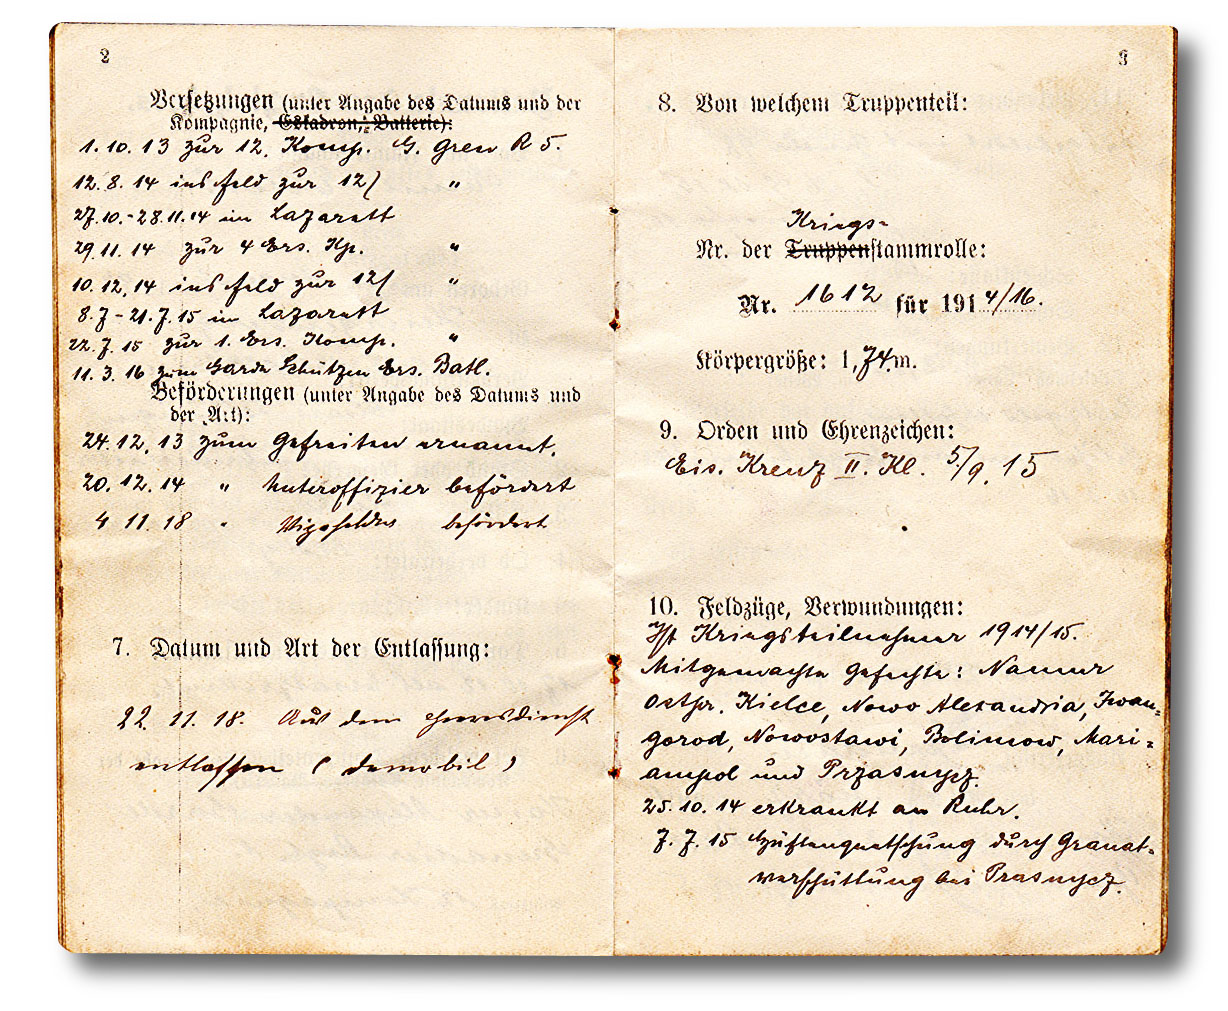 2
Versetzungen (unter Angabe des Datums und der
Kompagnie, Eskadron, Batterie):
1. 10. 13 zur 12. Komp. G. Gren R 5.
12. 8. 14 ins Feld zur 12/ "
27.10.-28.11.14 im Lazarett
29.11.14 zur 4 Ers. Kp. "
10.12.14 ins Feld zur 12/ "
8.7-21.7.15 im Lazarett
22.7.15 zur 1. Ers. Komp. "
11.3.16 zum Garde Schützen Ers. Batl.
Beförderungen (unter Angabe des Datums und
der Art):
24.12.13 zum Gefreiten ernannt.
20.12.14 " Unteroffizier befördert
4 11. 18 " Vizefeldw befördert
7. Datum und Art der Entlassung:
22. 11. 18. Aus dem Heeresdienst
entlassen (demobil)
3
8. Von welchem Truppenteil:
Kriegs-
Nr. der Truppenstammrolle:
Nr. 1612 für 1914/16.
Körpergröße: 1,74 m.
9. Orden und Ehrenzeichen:
Eis. Kreuz II. Kl. 5/9. 15
10. Feldzüge, Verwundungen:
Ist Kriegsteilnehmer 1914/15.
Mitgemachte Gefechte: Namur
Ostpr. Kielce, Nowo Alexandria, Iwan-
gorod, Nowostawi, Bolimow, Mari-
ampol und Przasnycz.
25.10.14 erkrankt an Ruhr.
7. 7. 15 Hüftenquetschung durch Granat-
verschüttung bei Prasnycz.